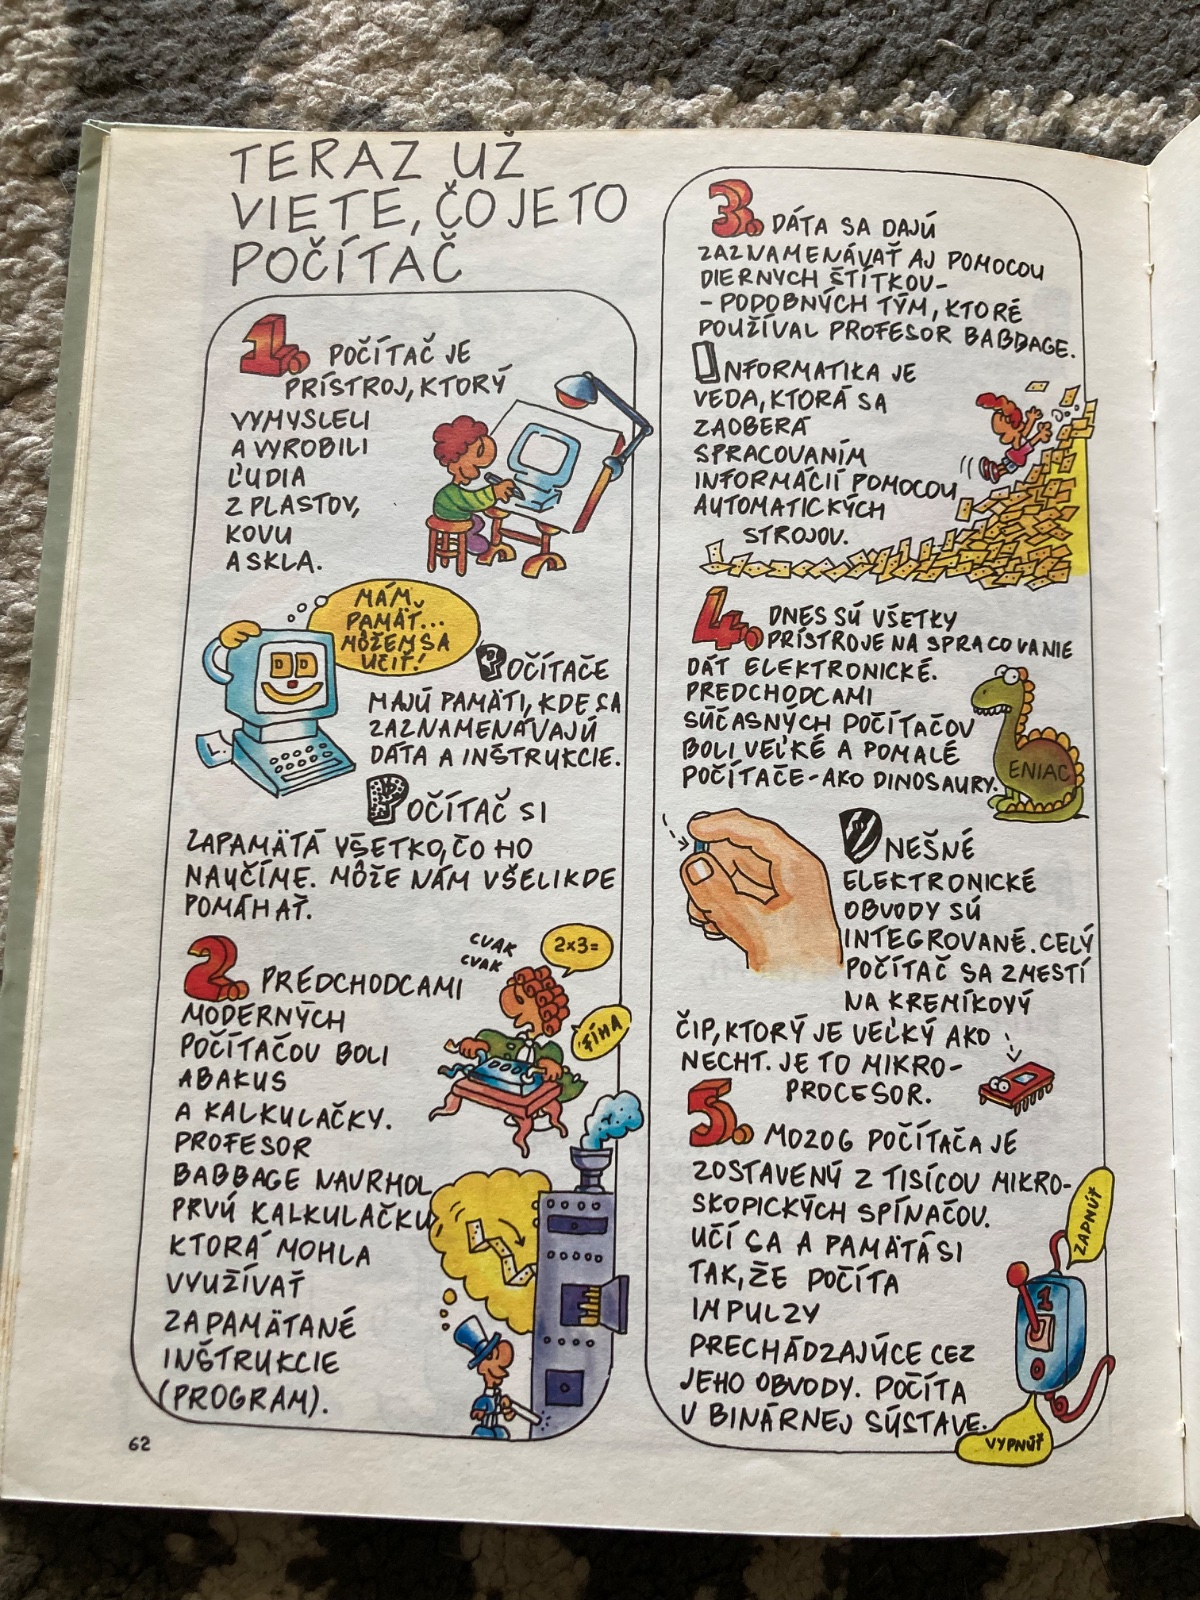 TERAZ UŽ
VIETE, ČO JE TO
POČÍTAČ
1. POČÍTAČ JE
PRÍSTROJ, KTORÝ
VYMYSLELI
A VYROBILI
ĽUDIA
Z PLASTOV,
KOVU
A SKLA.
MÁM
PAMÄŤ...
MÔŽEM SA
UČIŤ!
POČÍTAČE
MAJÚ PAMÄTI, KDE SA
ZAZNAMENÁVAJÚ
DÁTA A INŠTRUKCIE.
POČÍTAČ SI
ZAPAMÄTÁ VŠETKO, ČO HO
NAUČÍME. MÔŽE NÁM VŠELIKDE
POMÁHAŤ.
2. PREDCHODCAMI
MODERNÝCH
POČÍTAČOV BOLI
ABAKUS
A KALKULAČKY.
PROFESOR
BABBAGE NAVRHOL
PRVÚ KALKULAČKU,
KTORÁ MOHLA
VYUŽÍVAŤ
ZAPAMÄTANÉ
INŠTRUKCIE
(PROGRAM).
CVAK
CVAK
2x3=
FÍHA
62
3. DÁTA SA DAJÚ
ZAZNAMENÁVAŤ AJ POMOCOU
DIERNYCH ŠTÍTKOV-
- PODOBNÝCH TÝM, KTORÉ
POUŽÍVAL PROFESOR BABBAGE.
INFORMATIKA JE
VEDA, KTORÁ SA
ZAOBERÁ
SPRACOVANÍM
INFORMÁCIÍ POMOCOU
AUTOMATICKÝCH
STROJOV.
4. DNES SÚ VŠETKY
PRÍSTROJE NA SPRACOVANIE
DÁT ELEKTRONICKÉ.
PREDCHODCAMI
SÚČASNÝCH POČÍTAČOV
BOLI VEĽKÉ A POMALÉ
POČÍTAČE - AKO DINOSAURY.
ENIAC
DNEŠNÉ
ELEKTRONICKÉ
OBVODY SÚ
INTEGROVANÉ. CELÝ
POČÍTAČ SA ZMESTÍ
NA KREMÍKOVÝ
ČIP, KTORÝ JE VEĽKÝ AKO
NECHT. JE TO MIKRO-
PROCESOR.
5. MOZOG POČÍTAČA JE
ZOSTAVENÝ Z TISÍCOV MIKRO-
SKOPICKÝCH SPÍNAČOV.
UČÍ SA A PAMÄTÁ SI
TAK, ŽE POČÍTA
IMPULZY
PRECHÁDZAJÚCE CEZ
JEHO OBVODY. POČÍTA
V BINÁRNEJ SÚSTAVE.
ZAPNÚŤ
1
VYPNÚŤ